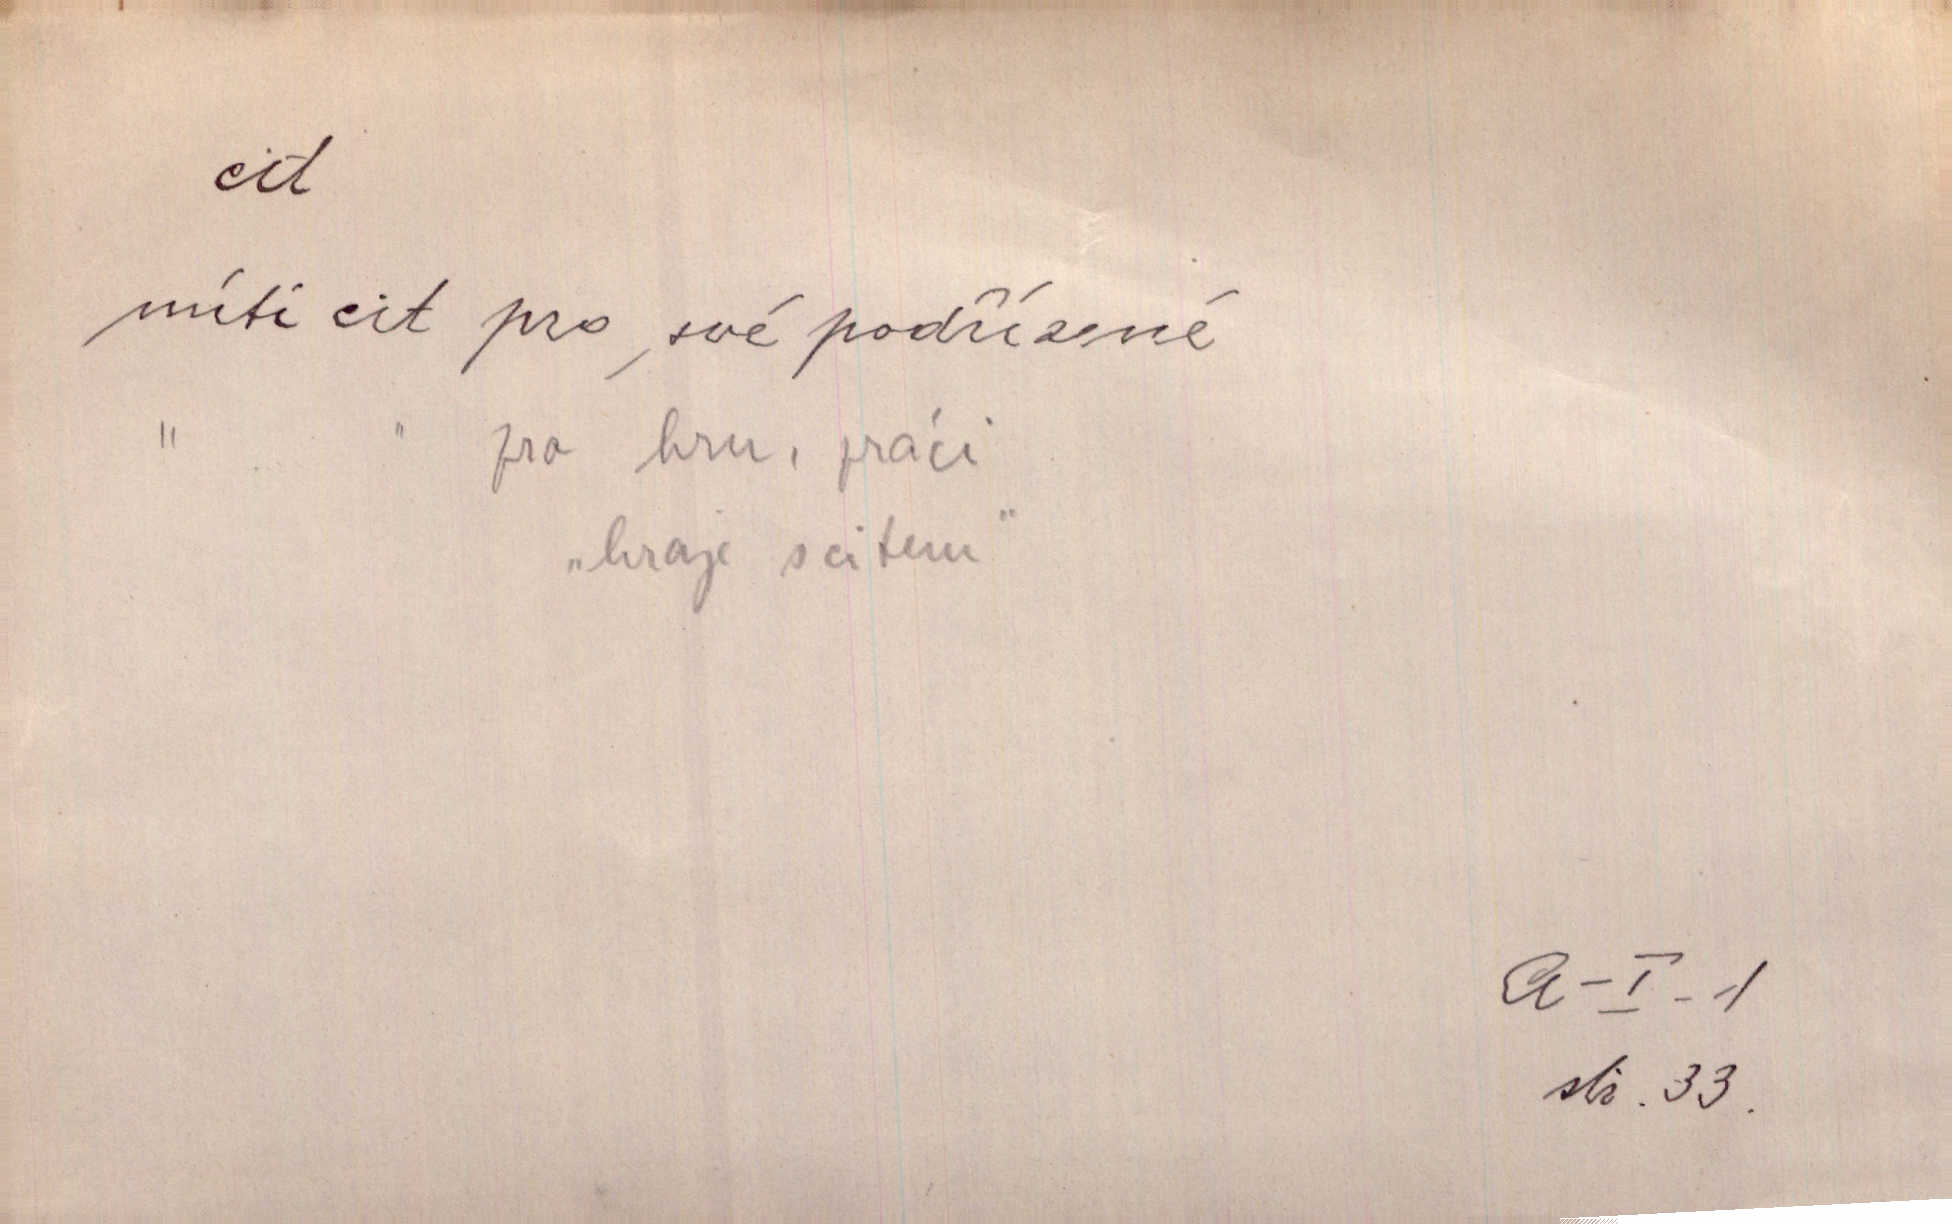 cit
míti cit pro své podřízené
" " pro hru, práci
„hraje s citem"
A-I-1
str. 33.